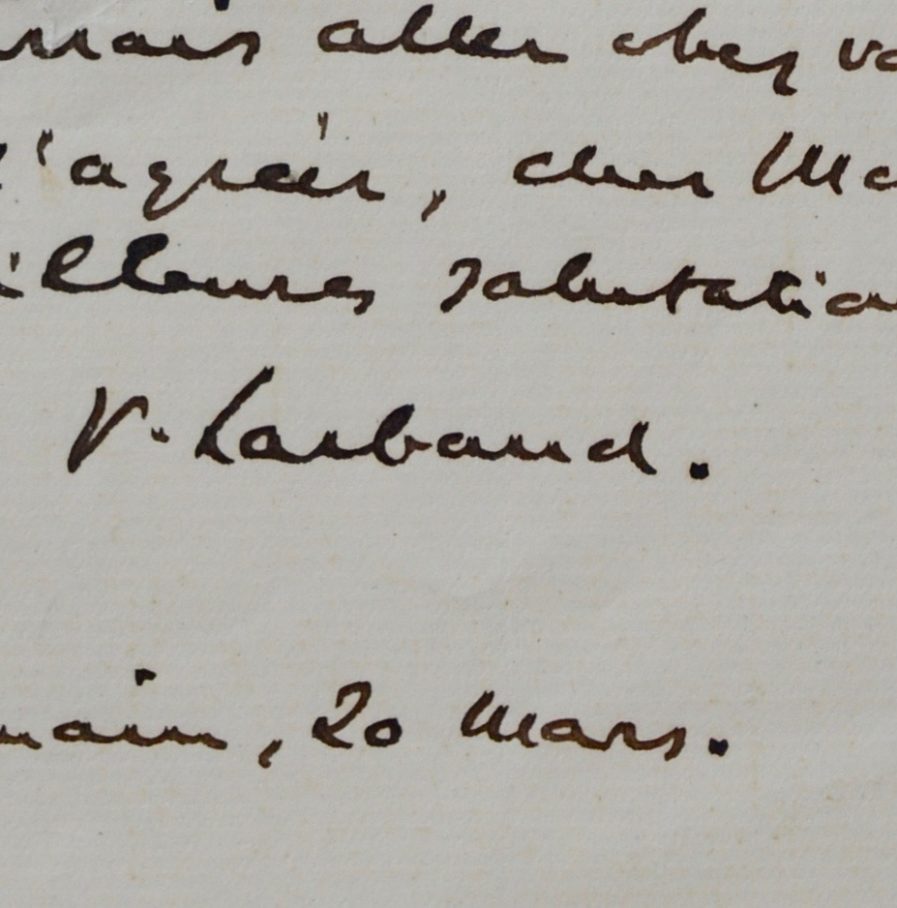 rais aller chez vo
d'agréer, cher Mo
illeures salutatio
V. Larbaud.
main, 20 Mars.